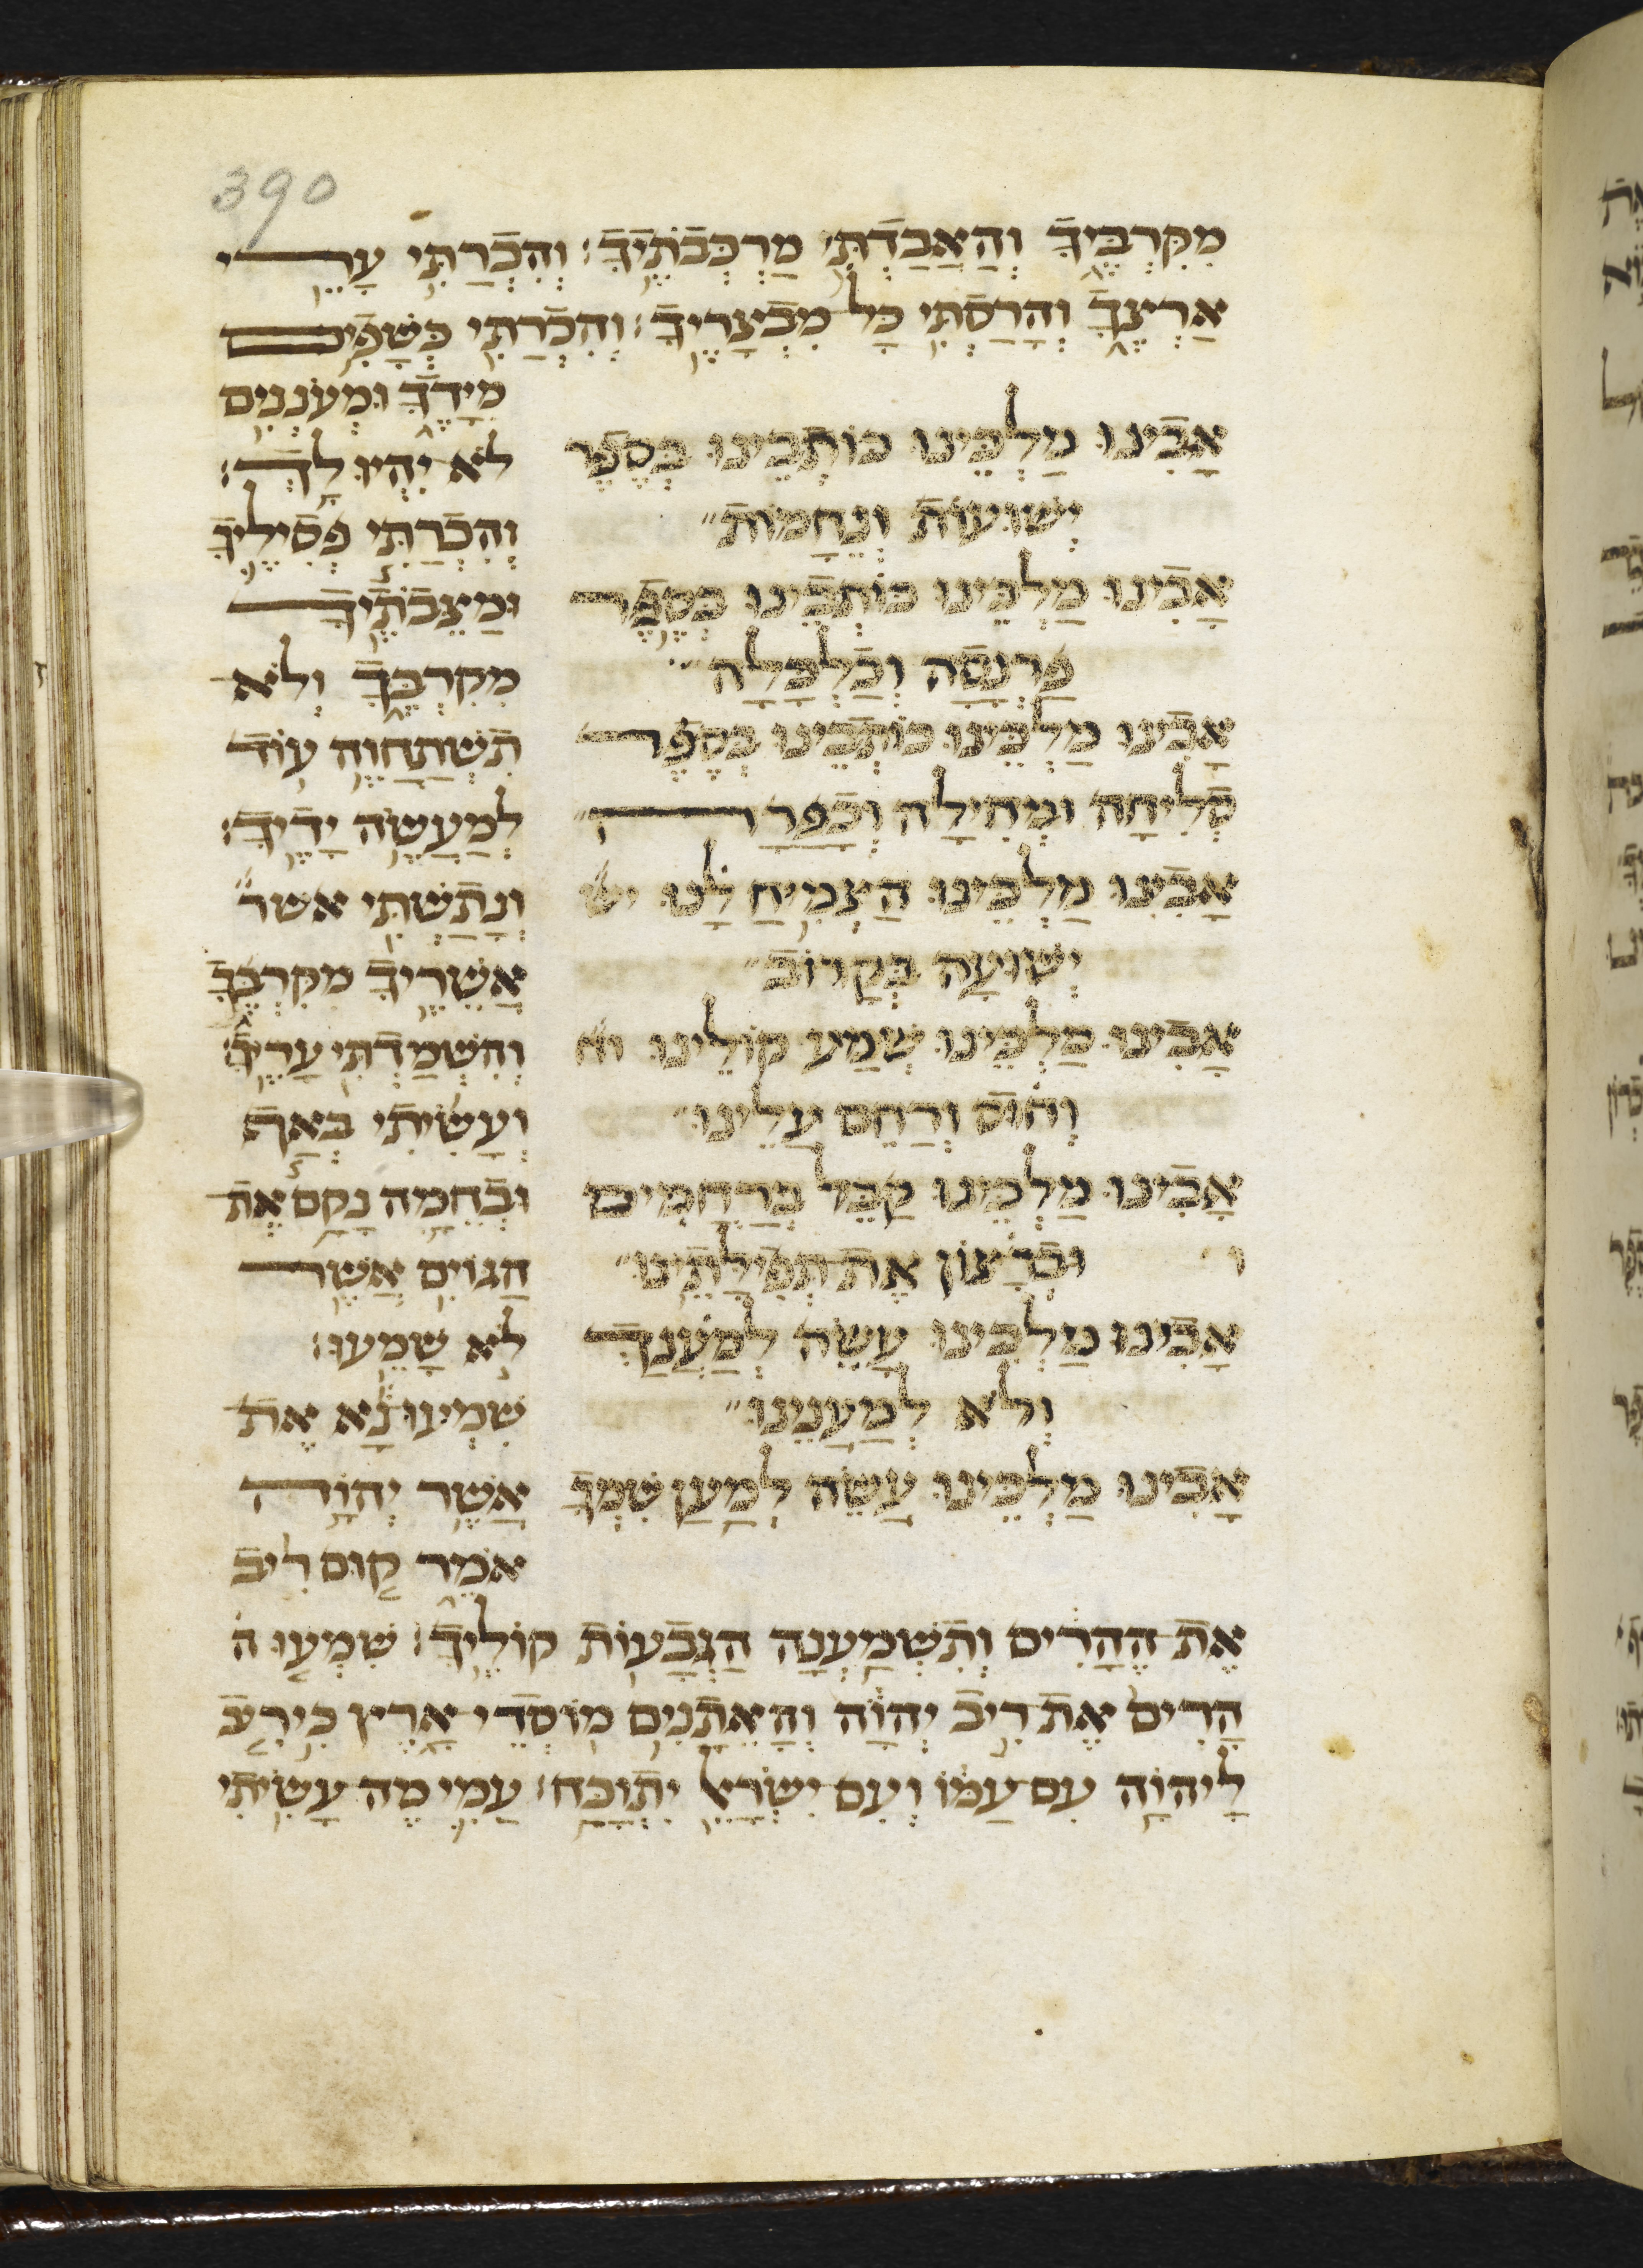 390
מִקִּרְבֶּיךָ וְהַאֲבַדְתִּ מַרְכְּבֹתֶיךָ: וְהִכְרַתִּי עָרֵי
אַרְצֶךָ וְהָרַסְתִּי כָּל מִבְצָרֶיךָ: וְהִכְרַתִּי כְּשָׁפִים
אָבִינוּ מַלְכֵּינוּ כּוֹתְבֵינוּ בְּסֵפֶר
יְשׁוּעוֹת וְנֶחָמוֹת״
אָבִינוּ מַלְכֵּינוּ כּוֹתְבֵינוּ בְּסֵפֶר
פַּרְנָסָה וְכַלְכָּלָה״
אָבִינוּ מַלְכֵּינוּ כּוֹתְבֵינוּ בְּסֵפֶר
סְלִיחָה וּמְחִילָה וְכַפָּרָה
אָבִינוּ מַלְכֵּינוּ הַצְמִיחַ לָנוּ יש
יְשׁוּעָה בְּקָרוֹב״
אָבִינוּ מַלְכֵּינוּ שְׁמַע קוֹלֵינוּ וח
וְחוּס וְרַחֵם עָלֵינוּ״
אָבִינוּ מַלְכֵּינוּ קַבֵּל בְּרַחֲמִים
ו וּבְרָצוֹן אֶת תְּפִילָתֵינוּ״
אָבִינוּ מַלְכֵּינוּ עֲשֵׂה לְמַעַנְךָ
וְלֹא לְמַעֲנֵינוּ״
אָבִינוּ מַלְכֵּינוּ עֲשֵׂה לְמַעַן שִׁמְךָ
מִיָּדֶךָ וּמְעוֹנְנִים
לֹא יִהְיוּ לָךְ:
וְהִכְרַתִּי פְסִילֶיךָ
וּמַצֵּבֹתֶיךָ
מִקִּרְבֶּךָ וְלֹא
תִשְׁתַּחֲוֶה עוֹד
לְמַעֲשֵׂה יָדֶיךָ:
וְנָתַשְׁתִּי אשר״
אֲשֵׁרֶיךָ מִקִּרְבֶּךָ
וְהִשְׁמַדְתִּי עָרֶיךָ:
וְעָשִׂיתִי בְּאַף
וּבְחֵמָה נָקָם אֶת
הַגּוֹיִם אֲשֶׁר
לֹא שָׁמֵעוּ:
שִׁמְעוּ נָא אֶת
אֲשֶׁר יְהוָה
אֹמֵר קוּם רִיב
אֶת הֶהָרִים וְתִשְׁמַעְנָה הַגְּבָעוֹת קוֹלֶיךָ: שִׁמְעוּ ה
הָרִים אֶת רִיב יְהוָה וְהָאֵתָנִים מוֹסְדֵי אָרֶץ כִּי רִיב
לַיהוָה עִם עַמּוֹ וְעִם יִשְׂרָאֵל יִתְוַכָּח: עַמִּי מֶה עָשִׂיתִי